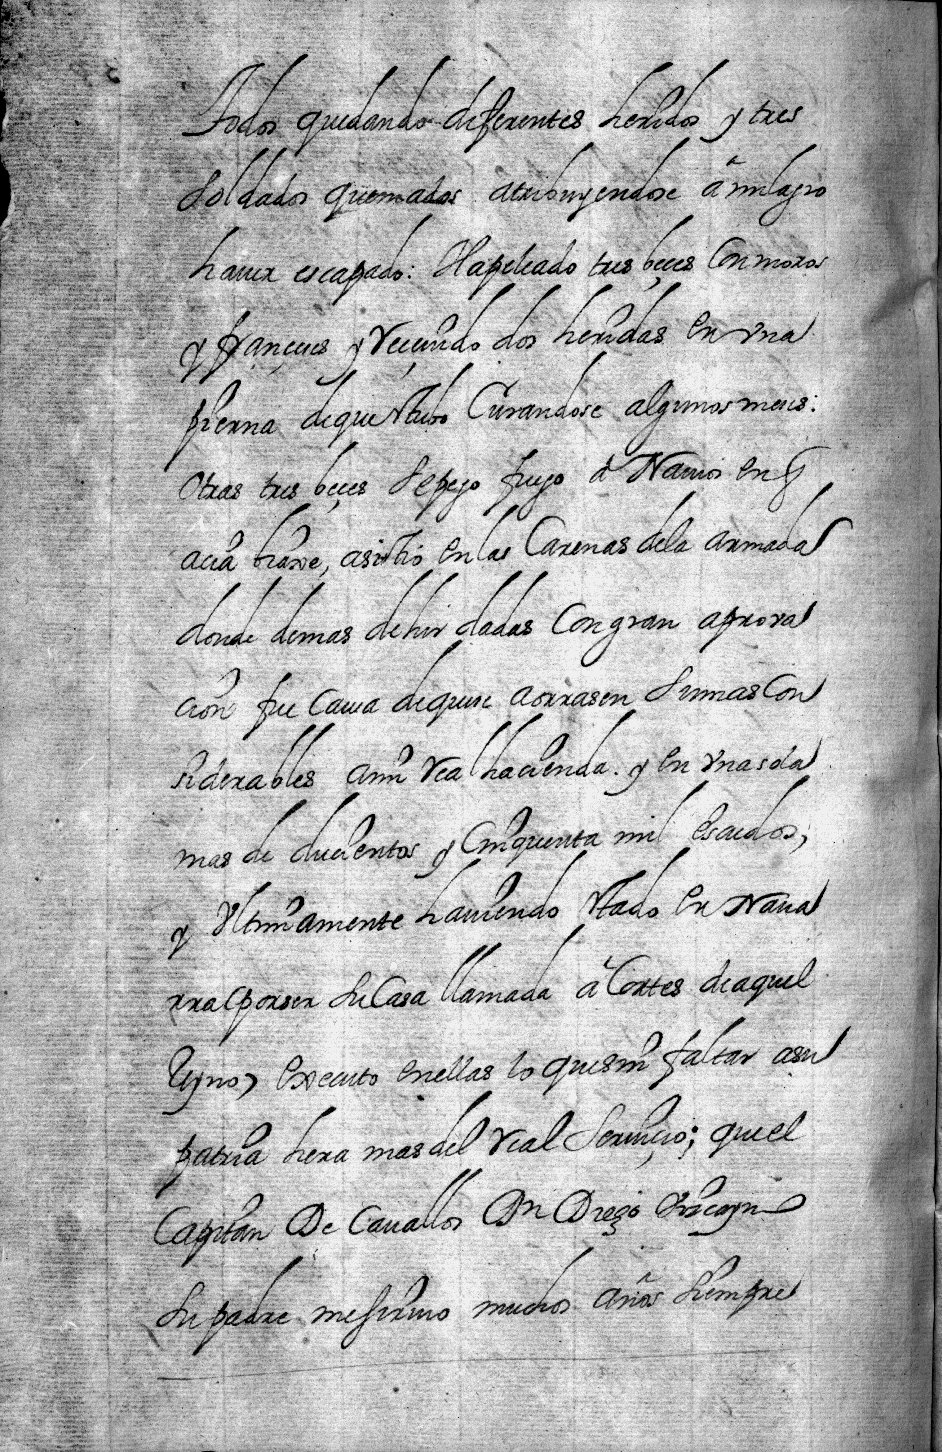 todos quedando diferentes heridos y tres
soldados quemados atribuyendose â milagro
hauer escapado: Ha peleado tres beçes con moros
y françeses y reçiuido dos heridas en vna
pierna de que estubo curandose algunos meses:
otras tres beçes se pego fuego â Nauios en q̃
acia biaxe, asistio en las Carenas dela armada
donde demas de hir dadas Con gran aproua
cion fue causa de que se aorrasen sumas Con
siderables a mi real hacienda. y en vna sola
mas de ducientos y Cinquenta mil escudos,
y Vltimamente hauiendo estado en Naua
rra (por ser su Casa llamada â Cortes de aquel
Reyno) executo en ellas lo que sin faltar a su
patria hera mas del real seruiçio; que el
Capitan De Cauallos Dn Diego
su padre me siruio muchos años siempre